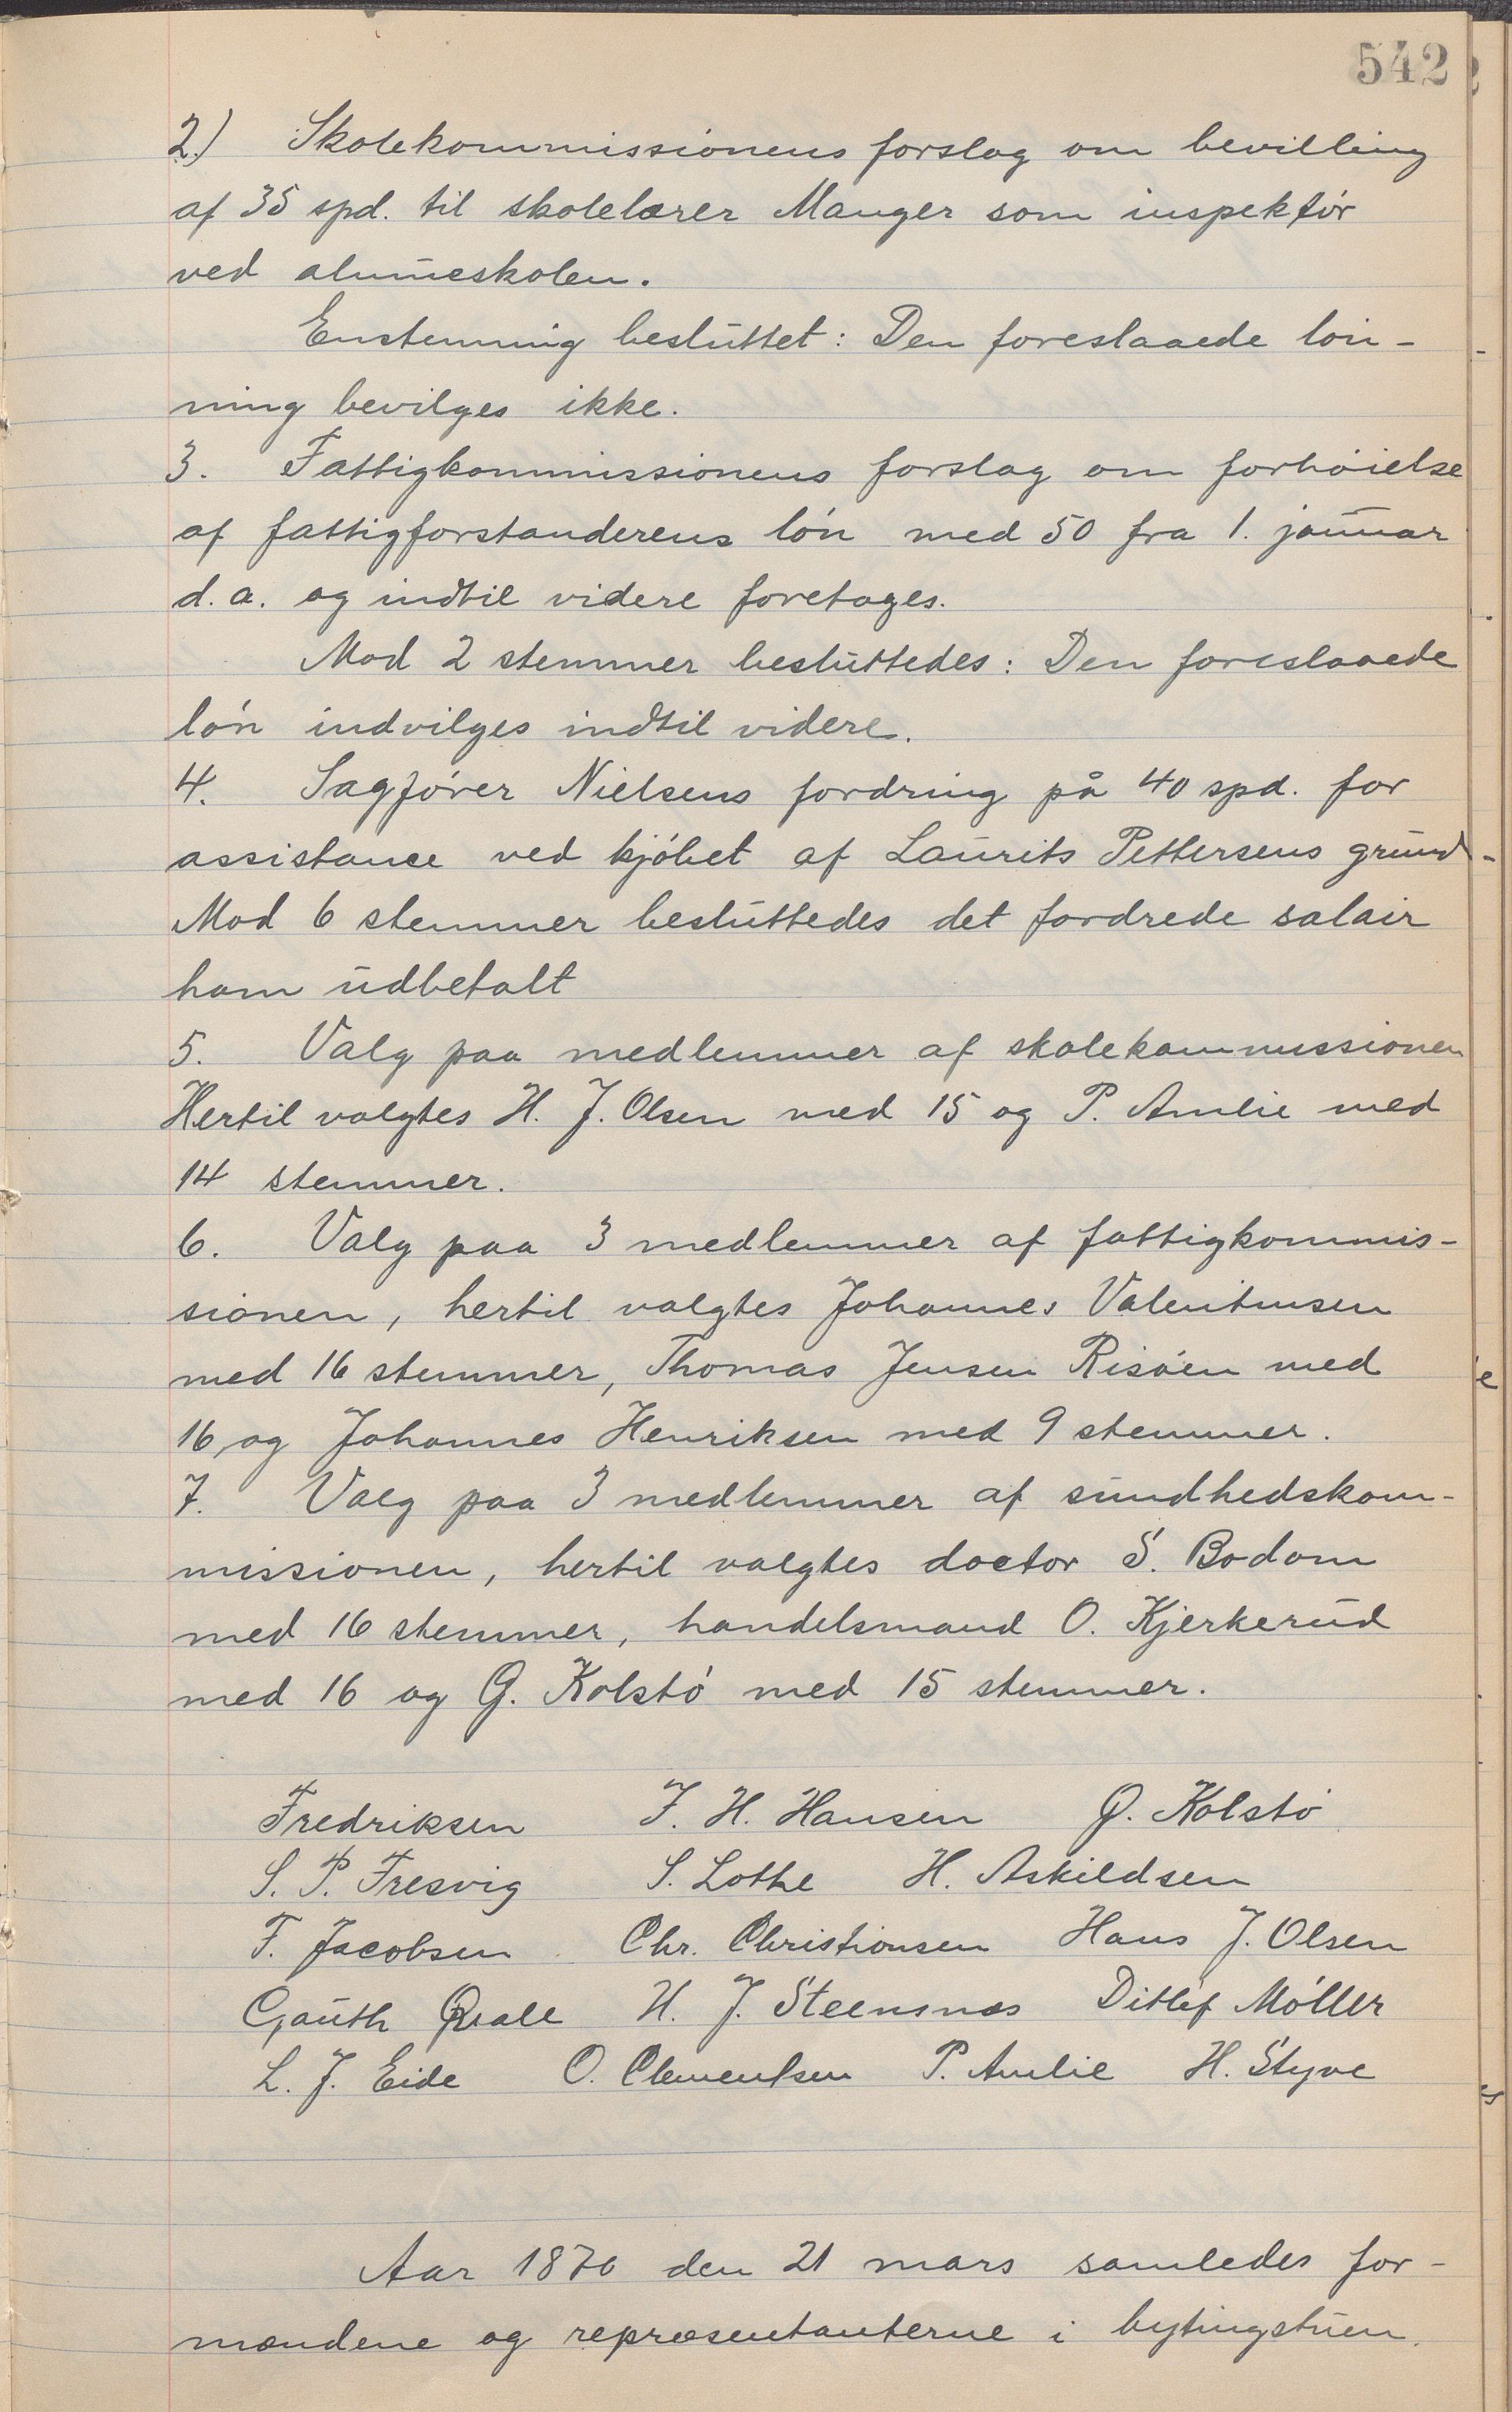 542
2.) Skolekommissionens forslag om bevilling
af 35 spd. til skolelærer Manger som inspektør
ved almueskolen.
Enstemmig besluttet: Den foreslaaede løn-
ning bevilges ikke.
3. Fattigkommissionens forslag om forhøielse
af fattigforstanderens løn med 50 fra 1. januar
d. a. og indtil videre foretages.
Mod 2 stemmer besluttedes: Den foreslaaede
løn indvilges indtil videre.
4. Sagfører Nielsens fordring på 40 spd. for
assistance ved kjøbet af Laurits Pettersens grund-
Mod 6 stemmer besluttedes det fordrede salair
ham udbetalt
5. Valg paa medlemmer af skolekommissionen
Hertil valgtes H. J. Olsen med 15 og P. Amlie med
14 stemmer.
6. Valg paa 3 medlemmer af fattigkommis-
sionen, hertil valgtes Johannes Valentinsen
med 16 stemmer, Thomas Jensen Risøen med
16, og Johannes Henriksen med 9 stemmer.
7. Valg paa 3 medlemmer af sundhedskom-
missionen, hertil valgtes doctor S. Bodom
med 16 stemmer, handelsmand O. Kjerkerud
med 16 og G. Kolstø med 15 stemmer.
Fredriksen J. H. Hansen G. Kolstø
S. P. Tresvig S. Lothe H. Askildsen
F. Jacobsen Chr. Christiansen Hans J. Olsen
Gauth Qvale H. J. Steensnæs Ditlef Møller
L. J. Eide O. Clementsen P. Amlie H. Styve
Aar 1870 den 21 mars samledes for-
mændene og repræsentanterne i bytingstuen.